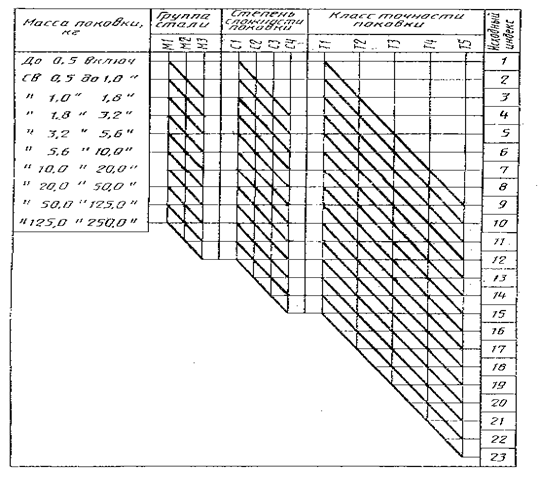 Масса поковки, кг
Группа стали
Степень сложности поковки
Класс точности поковки
Исходный индекс
М1 М2 М3 С1 С2 С3 С4 Т1 Т2 Т3 Т4 Т5
До 0,5 включ 1
СВ 0,5 до 1,0 " 2
" 1,0 " 1,8 " 3
" 1,8 " 3,2 " 4
" 3,2 " 5,6 " 5
" 5,6 " 10,0 " 6
" 10,0 " 20,0 " 7
" 20,0 " 50,0 " 8
" 50,0 " 125,0 " 9
" 125,0 " 250,0 " 10
11
12
13
14
15
16
17
18
19
20
21
22
23